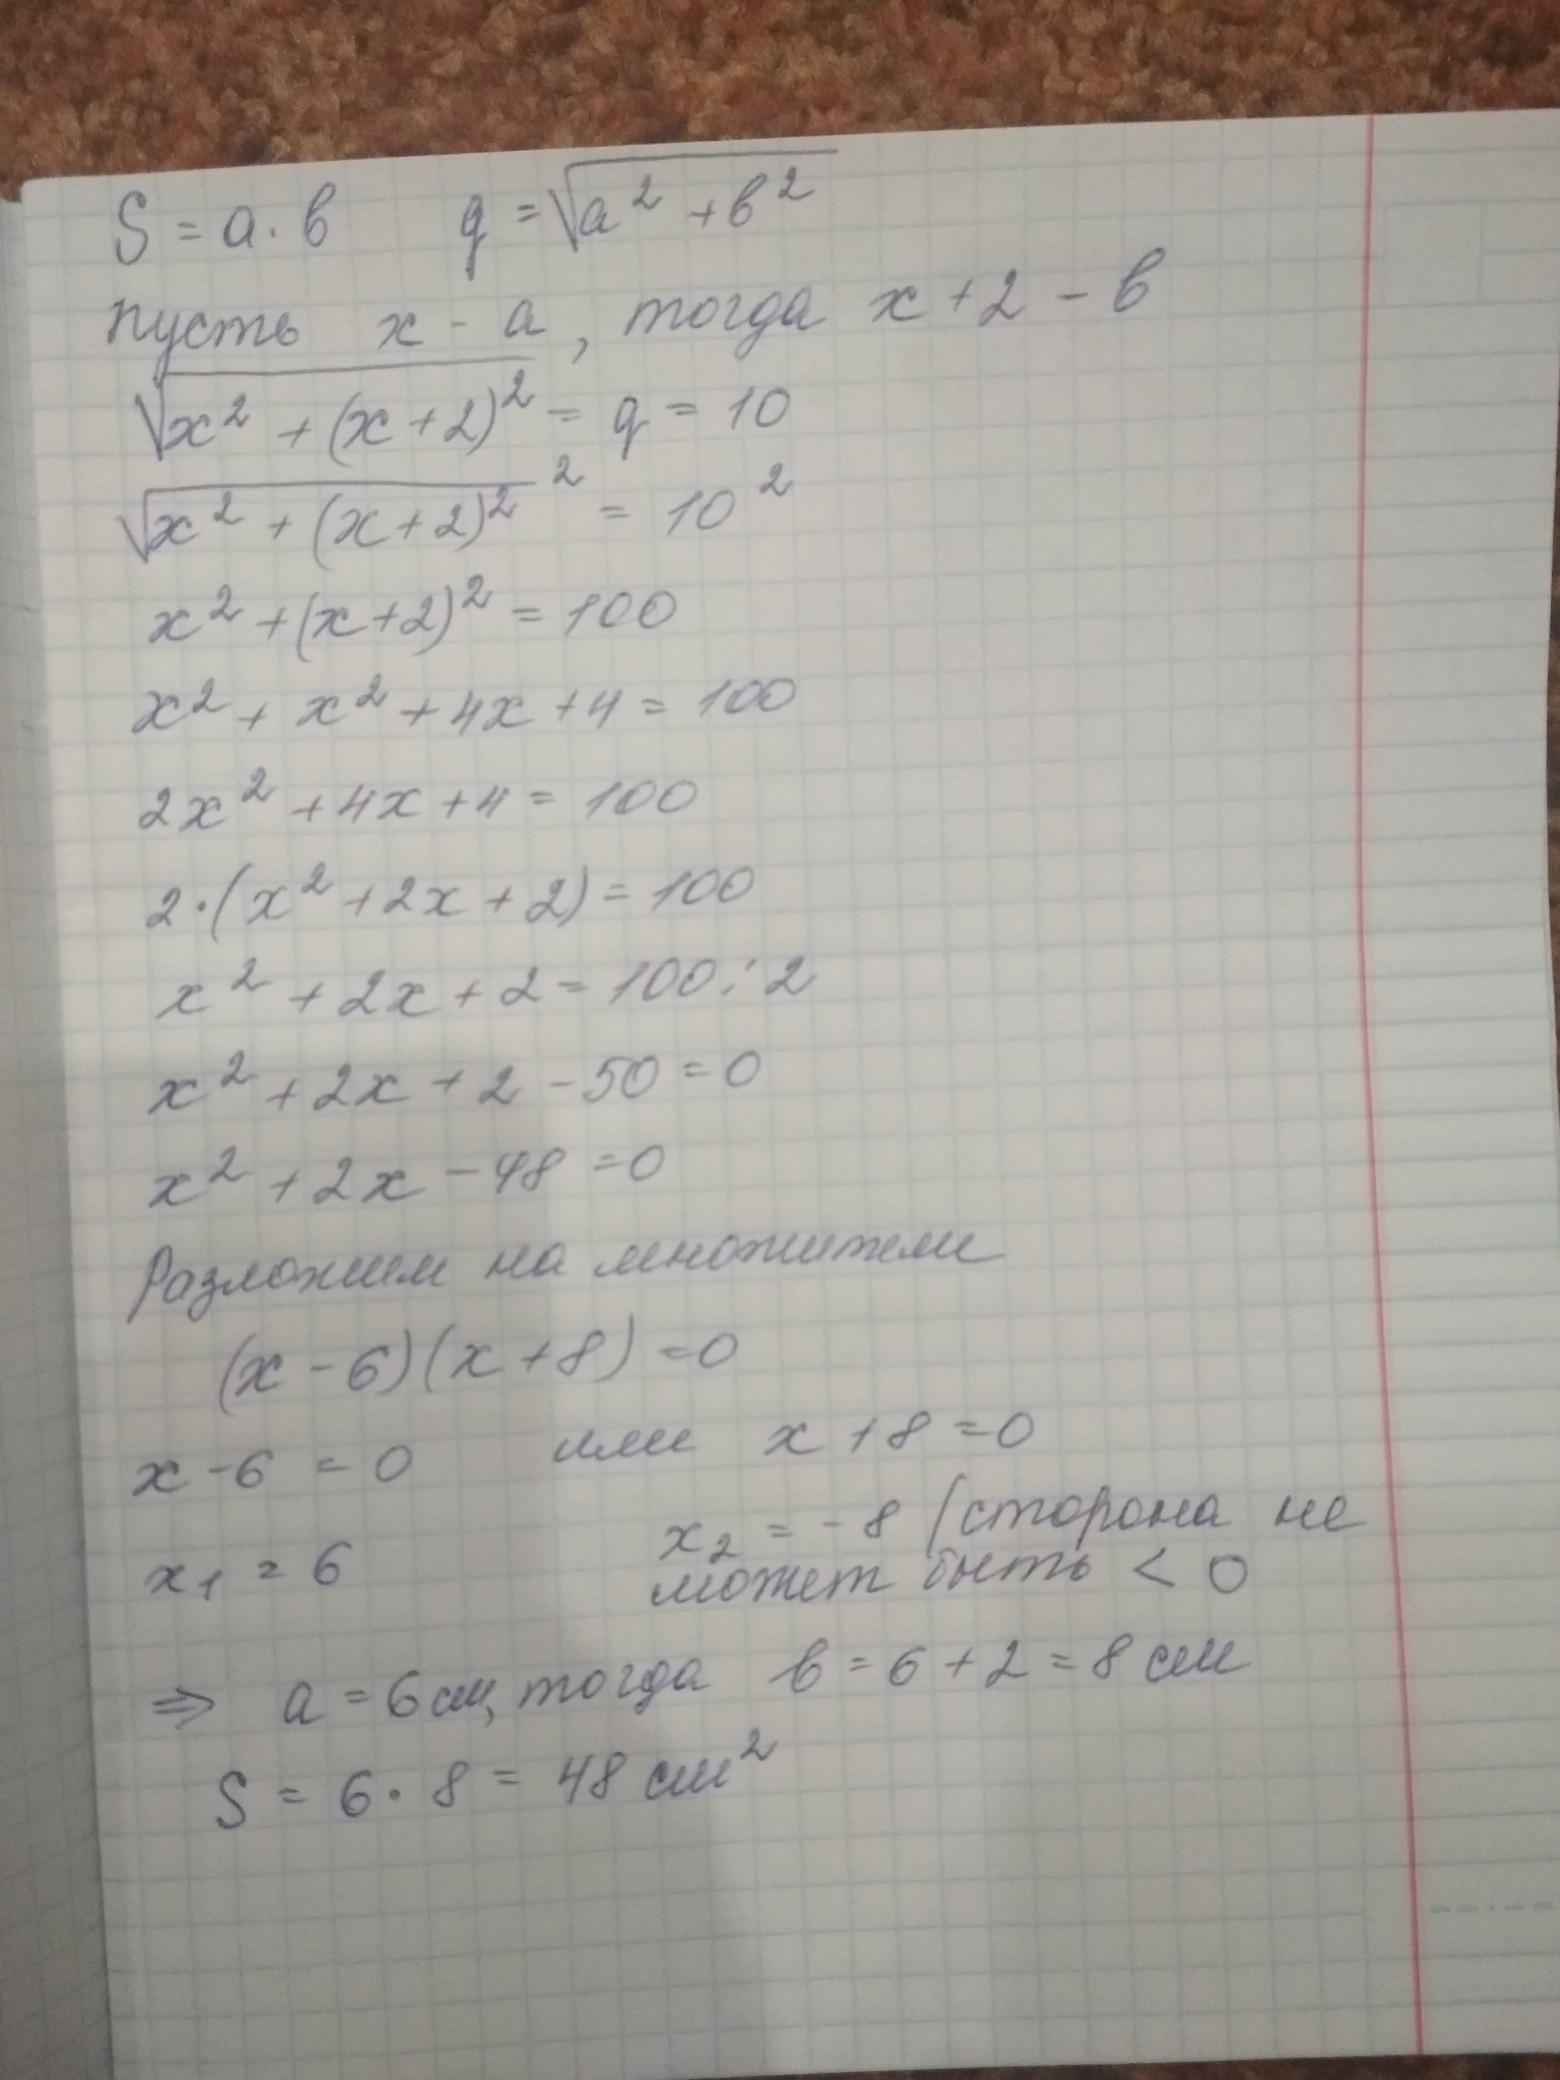 S = a · в  q = √(a² + в²)
пусть x - a, тогда x + 2 - в
√(x² + (x + 2)²) = q = 10
√(x² + (x + 2)²)² = 10²
x² + (x + 2)² = 100
x² + x² + 4x + 4 = 100
2x² + 4x + 4 = 100
2 · (x² + 2x + 2) = 100
x² + 2x + 2 = 100 : 2
x² + 2x + 2 - 50 = 0
x² + 2x - 48 = 0
Разложим на множители
(x - 6)(x + 8) = 0
x - 6 = 0 или x + 8 = 0
x₁ = 6 x₂ = - 8 (сторона не
может быть < 0
⇒ a = 6 см, тогда в = 6 + 2 = 8 см
S = 6 · 8 = 48 см²